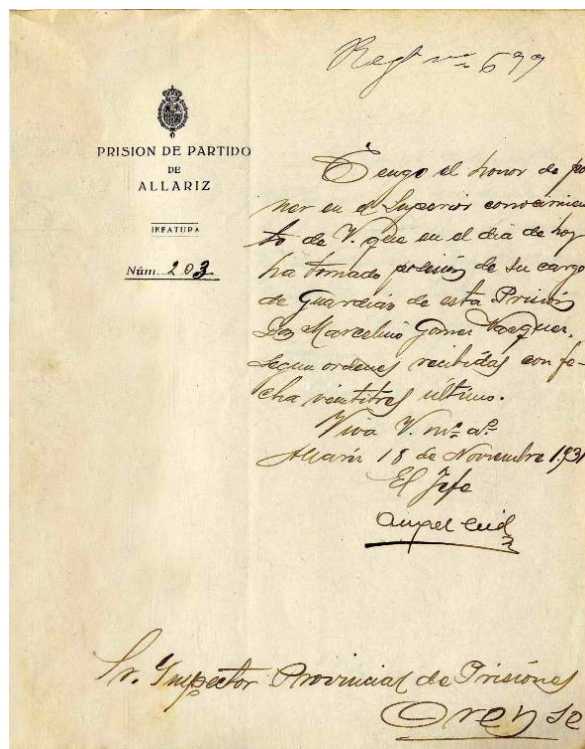 Regt nº 699
PRISION DE PARTIDO
DE
ALLARIZ
JEFATURA
Núm. 203
Tengo el honor de po
ner en el Superior conocimien
to de V. que en el dia de hoy
ha tomado posesión de su cargo
de Guardian de esta Prisión
Don Marcelino Gomez Vazquez,
segun ordenes recibidas con fe-
cha veintitres último.
Viva V. ms. as.
Allariz 18 de Noviembre 1931
El Jefe
Angel Cid
Sr. Inspector Provincial de Prisiones
Orense